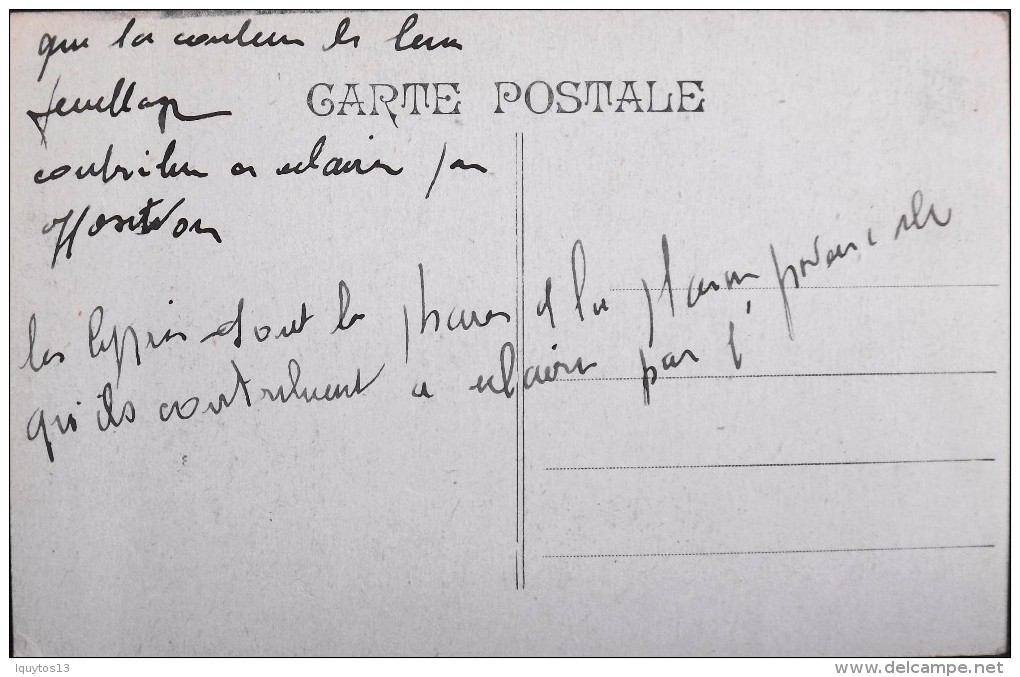 que la couleur de leur
feuillage
CARTE POSTALE
contribue a eclairer par
opposition
les cyprès sont les phares de la plaine,
qu'ils contribuent a eclairer par l'
lquytos13
www.delcampe.net